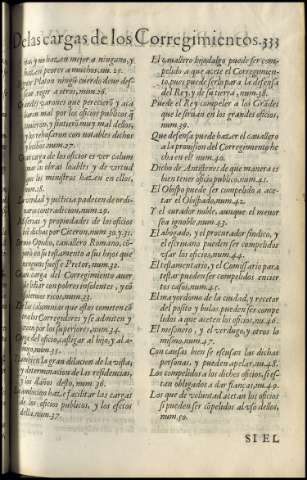 De las cargas de los Corregimientos. 333
y no hazen mejor a ninguno, y
hazen peores a muchos, nu. 25.
Platon ningũ cuerdo deue des-
sear regir a otros, num. 26.
Grandes varones que perecierõ y aca
baron mal por los oficios publicos q̃
y sintierõ muy mal dellos,
y los rehusaron con notables dichos
num. 27.
carga de los oficios es ver calum
niadas las lealtes y de virtud
que los ministros hazen en ellos,
num. 28.
verdad y justicia padecen de ordi-
nario contradicion, num. 29.
y propiedades de los oficios
dichas por Ciceron, num. 30. y 31.
Opidio, cauallero Romano, cõ-
por su testamento a sus hijos que
fuesse Pretor, num. 32.
carga del Corregimiento auer
de lidiar con pobres insolentes, y cõ
ricos, num. 33.
calumnias que estos cometen cõ
los Corregidores y se admiten y
por los superiores, num. 34.
Carga del oficio, castigar al hijo, y al a-
num. 35.
la gran dilacion de la vista,
y determinacion de las residencias,
y los daños desto, num. 36.
La ambicion haze, facilitar las cargas
de los oficios publicos, y los efetos
della, num. 37.
El cauallero hijodalgo puede ser com-
pelido a que acete el Corregimien-
to, pues puede serlo para la defensa
del Rey, y de su tierra, num. 38.
Puede el Rey compeler a los Grãdes
que le siruan en los grandes oficios,
num. 39.
Que defensa puede hazer el cauallero
a la prouision del Corregimiento he
cha en el? num. 40.
Dicho de Antistenes de que manera es
bien tener oficio publico, num. 41.
El Obispo puede ser compelido a ace-
tar el Obispado, num. 42.
Y el curador noble, aunque el menor
sea ignoble, num. 43.
El abogado, y el procurador sindico, y
el escriuano pueden ser compelidos
vsar los oficios, num. 44.
El testamentario, y el Comissario para
testar pueden ser compelidos en cier
tos casos, num. 45.
El mayordomo de la ciudad, y recetor
del posito y bulas pueden ser compe
lidos a que aceten los oficios, nu. 46.
El mesonero, y el verdugo, y otros lo
mismo, num. 47.
Con causas bien se escusan las dichas
personas, y pueden apelar, num. 48.
Los compelidos a los dichos oficios, si es-
tan obligados a dar fianças, num. 49.
Los que de volũtad acetan los oficios
si pueden ser cõpelidos al vso dellos,
num. 50.
SI EL